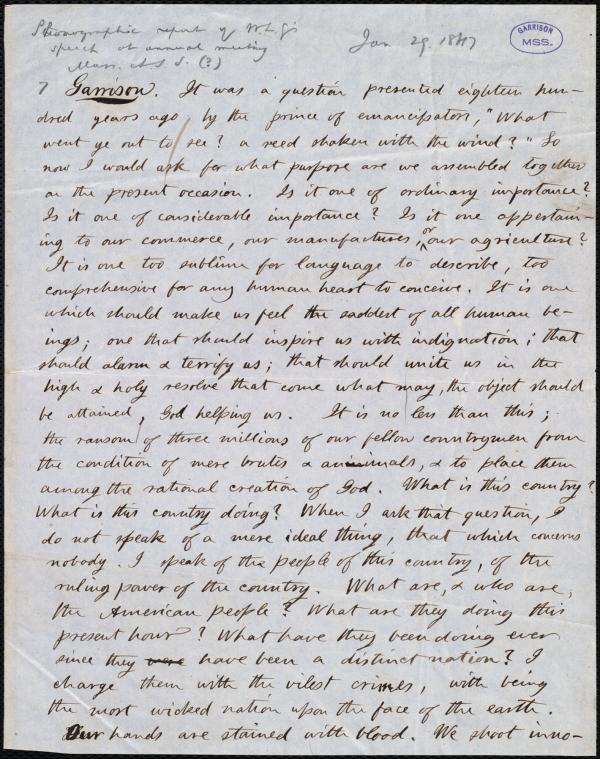 Phonographic report of W. L. G's
speech at annual meeting
Mass. A S S. (?)
Jan 29. 1847
GARRISON
MSS.
7 Garrison. It was a question presented eighteen hun-
dred years ago, by the prince of emancipators, "What
went ye out to see? a reed shaken with the wind?" So
now I would ask for what purpose are we assembled together
on the present occasion. Is it one of ordinary importance?
Is it one of considerable importance? Is it one appertain-
ing to our commerce, our manufactures, or our agriculture?
It is one too sublime for language to describe, too
comprehensive for any human heart to conceive. It is one
which should make us feel the saddest of all human be-
ings; one that should inspire us with indignation; that
should alarm & terrify us; that should unite us in the
high & holy resolve that come what may, the object should
be attained, God helping us. It is no less than this;
the ransom of three millions of our fellow countrymen from
the condition of mere brutes & animals, & to place them
among the rational creation of God. What is this country?
What is this country doing? When I ask that question, I
do not speak of a mere ideal thing, that which concerns
nobody. I speak of the people of this country, of the
ruling power of the country. What are, & who are,
the American people? What are they doing this
present hour? What have they been doing ever
since they were have been a distinct nation? I
charge them with the vilest crimes, with being
the most wicked nation upon the face of the earth.
Our hands are stained with blood. We shoot inno-